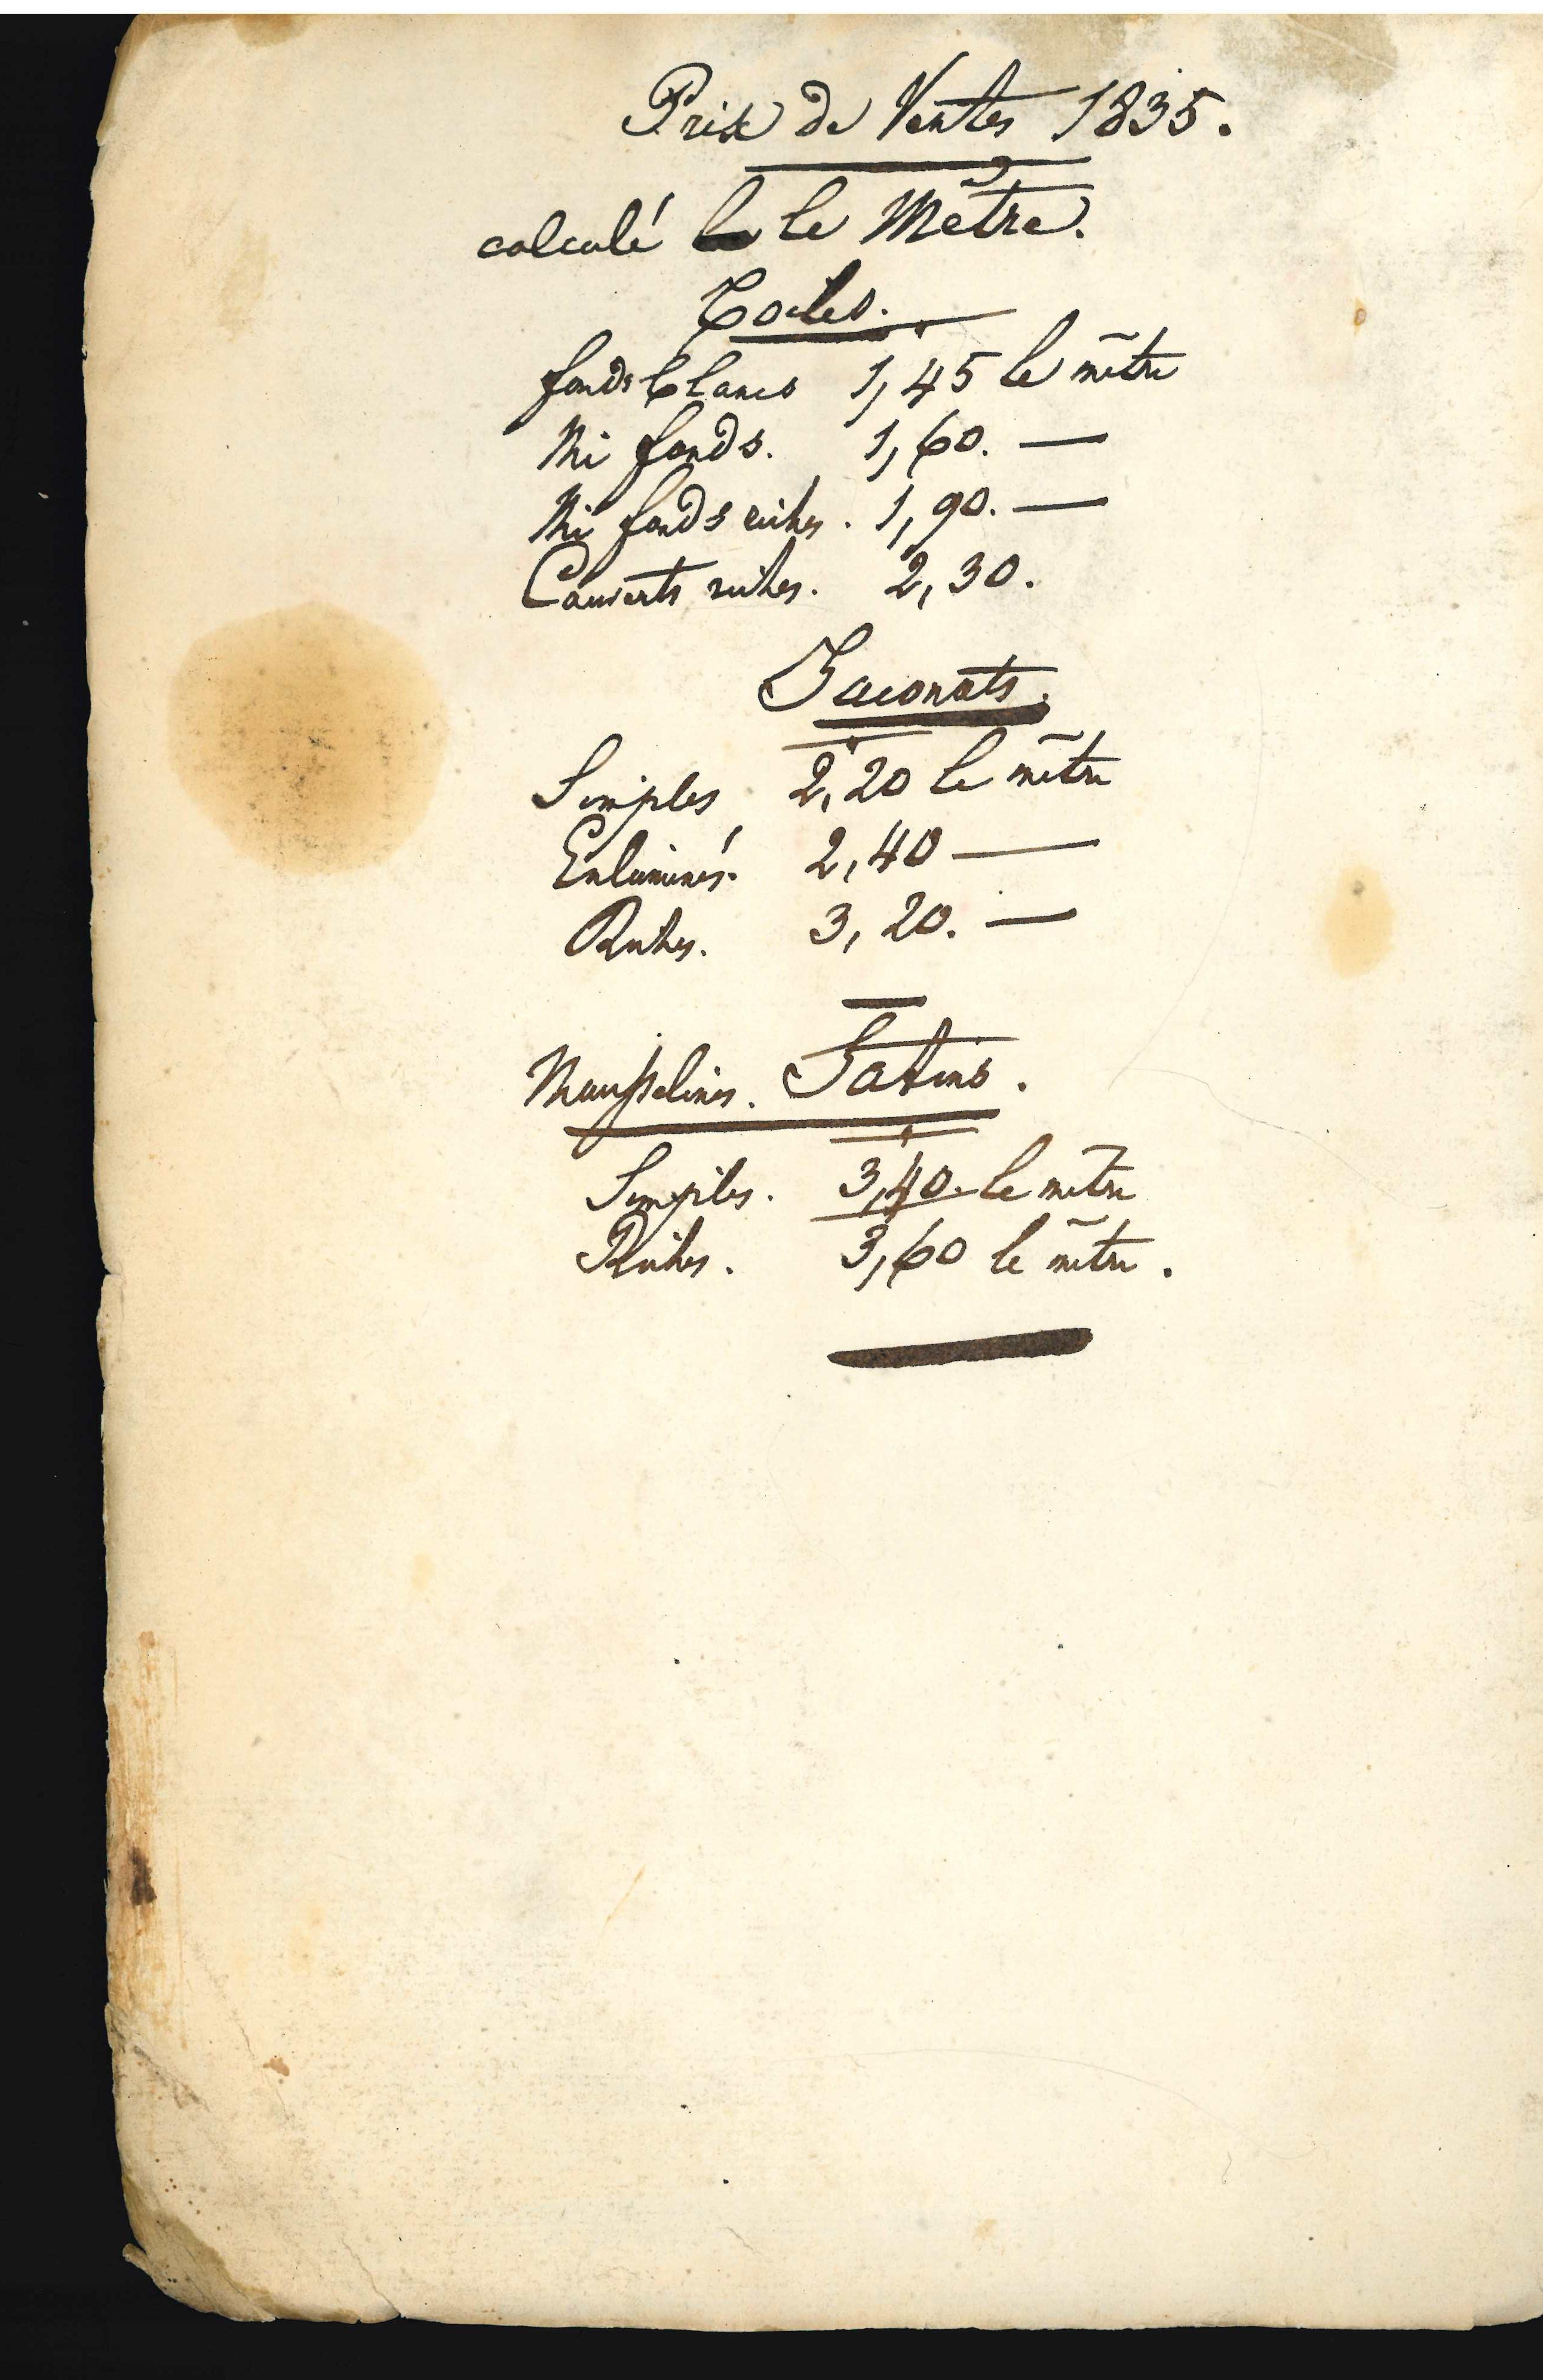 Prix de Ventes 1835.
calculé le le Mètre.
Toiles.
fonds blancs 1,45 le mètre
Mi fonds. 1,60. —
Mi fonds riches. 1,90. —
Couverts riches. 2,30.
Jaconats.
Simples 2,20 le mètre
Enluminés. 2,40 —
Riches. 3,20. —
Mousselines. Satins.
Simples. 3,40. le mètre
Riches. 3,60 le mètre.